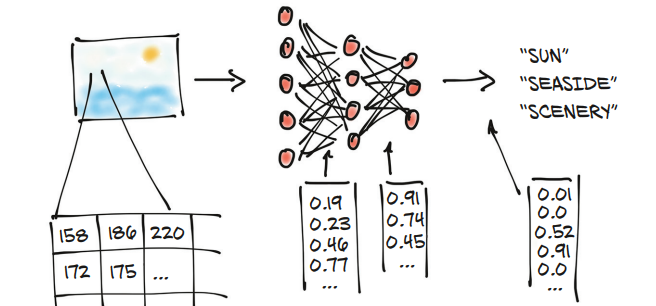 “SUN”
“SEASIDE”
“SCENERY”
158 186 220
172 175 ...
0.19
0.23
0.46
0.77
...
0.91
0.74
0.45
...
0.01
0.0
0.52
0.91
0.0
...